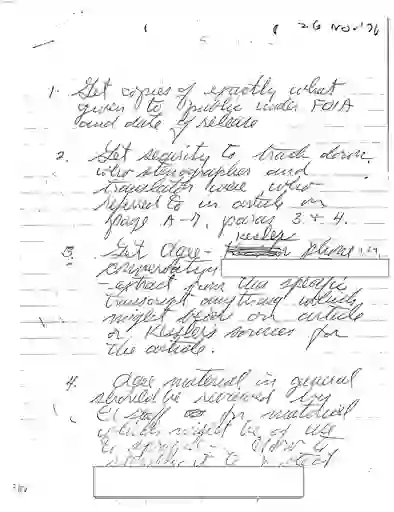 26 Nov '76
1. Get copies of exactly what
given to public under FOIA
and date of release
2. Get security to track down
who stenographer and
translator were who
referred to in article on
page A-7, paras 3 & 4.
Kessler
3. Get Oare- phone
conversation
-extract from this specific
transcript anything which
might bear on article
or Kessler's sources for
the article.
4. Oare material in general
should be reviewed by
staff for material
which might be of use
to
it to protect